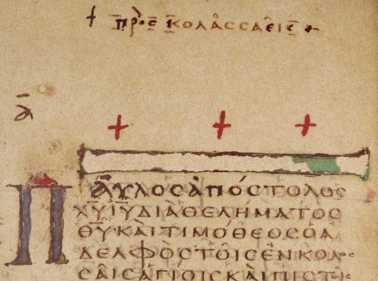 + ΠΡὸC ΚΟΛΑCCΑΕΙC +
Α̅
ΠΑΥΛΟCΑΠΟCΤΟΛΟC
Χ̅Υ̅Ι̅Υ̅ΔΙΑΘΕΛΗΜΑΤΟC
Θ̅Υ̅ΚΑΙΤΙΜΟΘΕΟCΟΑ
ΔΕΛΦΟCΤΟΙCΕΝΚΟΛ
CΑΙCΑΓΙΟΙCΚΑΙΠΙCΤ